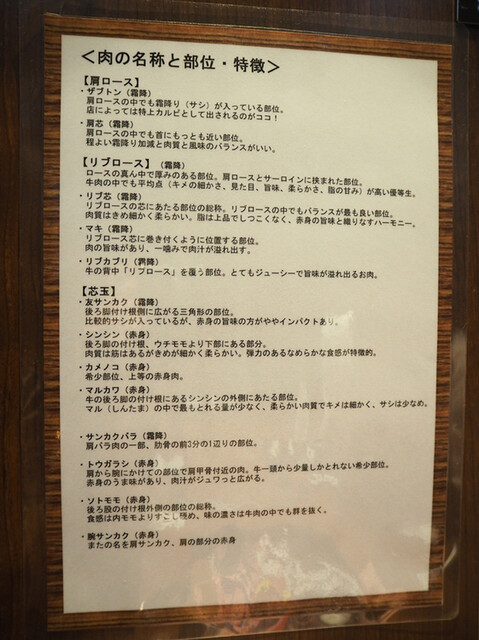 ＜肉の名称と部位・特徴＞
【肩ロース】
・ザブトン（霜降）
肩ロースの中でも霜降り（サシ）が入っている部位。
店によっては特上カルビとして出されるのがココ！
・肩芯（霜降）
肩ロースの中でも首にもっとも近い部位。
程よい霜降り加減と肉質と風味のバランスがいい。
【リブロース】（霜降）
ロースの真ん中で厚みのある部位。肩ロースとサーロインに挟まれた部位。
牛肉の中でも平均点（キメの細かさ、見た目、旨味、柔らかさ、脂の甘み）が高い優等生。
・リブ芯（霜降）
リブロースの芯にあたる部位の総称。リブロースの中でもバランスが最も良い部位。
肉質はきめ細かく柔らかい。脂は上品でしつこくなく、赤身の旨味と織りなすハーモニー。
・マキ（霜降）
リブロース芯に巻き付くように位置する部位。
肉の旨味があり、一噛みで肉汁が溢れ出す。
・リブカブリ（霜降）
牛の背中「リブロース」を覆う部位。とてもジューシーで旨味が溢れ出るお肉。
【芯玉】
・友サンカク（霜降）
後ろ脚付け根側に広がる三角形の部位。
比較的サシが入っているが、赤身の旨味の方がややインパクトあり。
・シンシン（赤身）
後ろ脚の付け根、ウチモモより下部にある部分。
肉質は筋はあるがきめが細かく柔らかい。弾力のあるなめらかな食感が特徴的。
・カメノコ（赤身）
希少部位、上等の赤身肉。
・マルカワ（赤身）
牛の後ろ脚の付け根にあるシンシンの外側にあたる部位。
マル（しんたま）の中で最もとれる量が少なく、柔らかい肉質でキメは細かく、サシは少なめ。
・サンカクバラ（霜降）
肩バラ肉の一部、肋骨の前3分の1辺りの部位。
・トウガラシ（赤身）
肩から腕にかけての部位で肩甲骨付近の肉。牛一頭から少量しかとれない希少部位。
赤身のうま味があり、肉汁がジュワっと広がる。
・ソトモモ（赤身）
後ろ股の付け根外側の部位の総称。
食感は内モモよりすこし硬め、味の濃さは牛肉の中でも群を抜く。
・腕サンカク（赤身）
またの名を肩サンカク、肩の部分の赤身